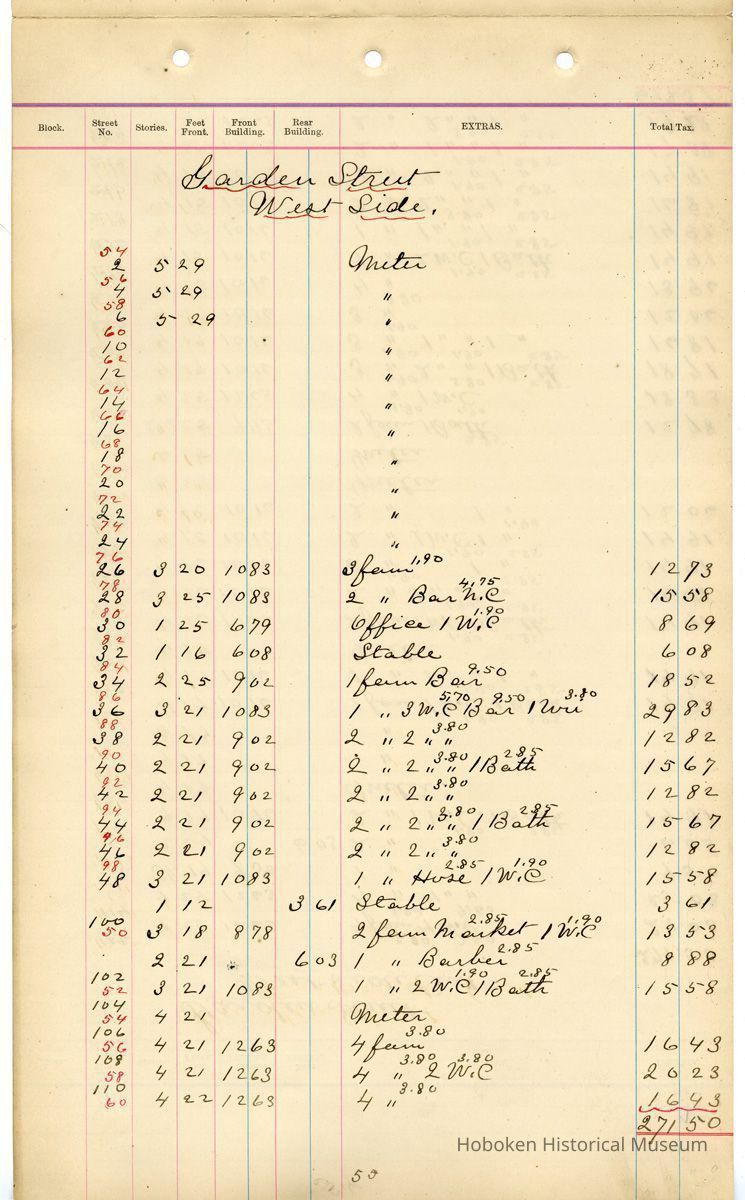 Block. Street No. Stories. Feet Front. Front Building. Rear Building. EXTRAS. Total Tax.
Garden Street
West Side.
54
2 5 29 Meter
56
4 5 29 "
58
6 5 29 "
60
10 "
62
12 "
64
14 "
66
16 "
68
18 "
70
20 "
72
22 "
74
24 "
76 1.90
26 3 20 1083 3 fam 12 73
78 4.75
28 3 25 1083 2 " Bar W.C 15 58
80 1.90
30 1 25 679 Office 1 W.C 8 69
82
32 1 16 608 Stable 6 08
84 9.50
34 2 25 902 1 fam Bar 18 52
86 5.70 9.50 3.80
36 3 21 1083 1 " 3 W.C Bar 1 29 83
88 3.80
38 2 21 902 2 " 2 " " 12 82
90 3.80 2.85
40 2 21 902 2 " 2 " " 1 Bath 15 67
92 3.80
42 2 21 902 2 " 2 " " 12 82
94 3.80 2.85
44 2 21 902 2 " 2 " " 1 Bath 15 67
96 3.80
46 2 21 902 2 " 2 " " 12 82
98 2.85 1.90
48 3 21 1083 1 " Hose 1 W.C 15 58
1 12 3 61 Stable 3 61
100 2.85 1.90
50 3 18 878 2 fam Market 1 W.C 13 53
2.85
2 21 6 03 1 " Barber 8 88
102 1.90 2.85
52 3 21 1083 1 " 2 W.C 1 Bath 15 58
104
54 4 21 Meter
106 3.80
56 4 21 1263 4 fam 16 43
108 3.80 3.80
58 4 21 1263 4 " 2 W.C 20 23
110 3.80
60 4 22 1263 4 " 16 43
271 50
Hoboken Historical Museum
53